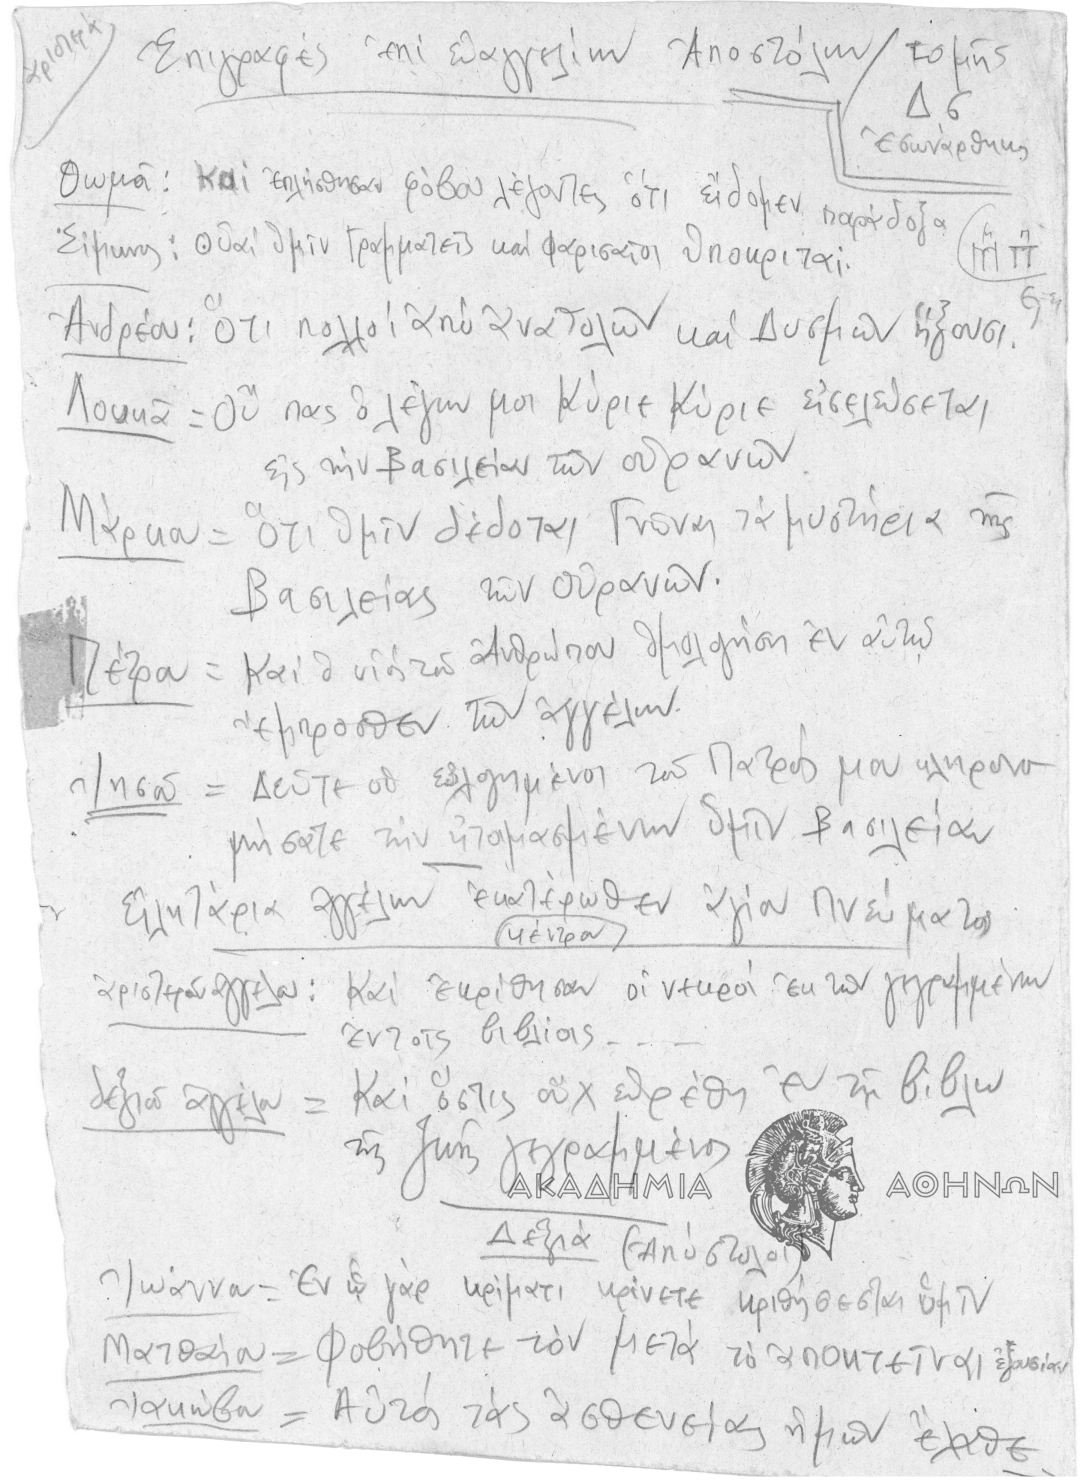 ἀριστερά
Ἐπιγραφές ἐπί εὐαγγελίων Ἀποστόλων / τομῆς
Δ σ
ἐσωνάρθηκος
Θωμᾶ: Καί ἐπλήσθησαν φόβου λέγοντες ὅτι εἴδομεν παράδοξα
Σίμωνος: Οὐαί ὑμῖν Γραμματεῖς καί Φαρισαῖοι ὑποκριταί.
Ἀνδρέου: Ὅτι πολλοί ἀπό ἀνατολῶν καί Δυσμῶν ἥξουσι.
Λουκᾶ = Οὔ πας ὁ λέγων μοι Κύριε Κύριε εἰσελεύσεται
εἰς τήν Βασιλείαν τῶν οὐρανῶν.
Μάρκου = Ὅτι ὑμῖν δέδοται Γνῶναι τά μυστήρια τῆς
Βασιλείας τῶν οὐρανῶν.
Πέτρου = Καί ὁ υἱός τοῦ Ἀνθρώπου ὁμολογήσῃ ἐν αὐτῷ
ἐμπροσθεν τῶν ἀγγέλων.
Ἰησοῦ = Δεῦτε οἱ εὐλογημένοι τοῦ Πατρός μου κληρονο-
μήσατε τήν ἡτοιμασμένην ὑμῖν Βασιλείαν
Εἰλητάρια ἀγγέλων ἑκατέρωθεν ἁγίου Πνεύματος
(κέντρον)
ἀριστεροῦ ἀγγέλου: Καί ἐκρίθησαν οἱ νεκροί ἐκ τῶν γεγραμμένων
ἐν τοῖς βιβλίοις - - -
δεξιοῦ ἀγγέλου = Καί ὅστις οὐχ εὑρέθη ἐν τῇ βίβλω
τῆς ζωῆς γεγραμμένος
ΑΚΑΔΗΜΙΑ ΑΘΗΝΩΝ
Δεξιά (Ἀπόστολοι)
Ἰωάννου = Ἐν ᾧ γάρ κρίματι κρίνετε κριθήσεσται ὑμῖν
Ματθαίου = Φοβήθητε τόν μετά τό ἀποκτεῖναι ἐξουσίαν
Ἰακώβου = Αὐτός τάς ἀσθενείας ἡμῶν ἔλαβε